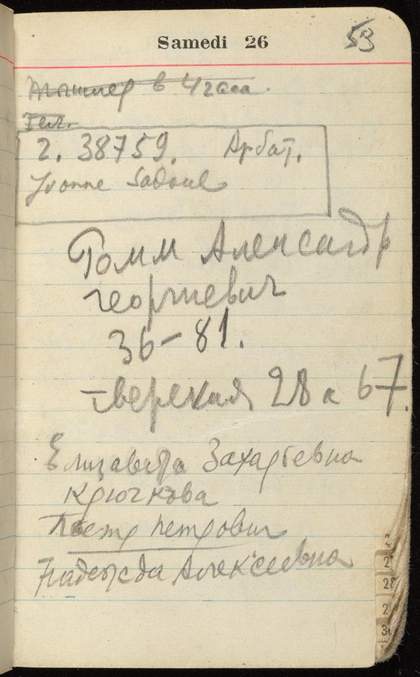 Samedi 26
53
в 4 часа.
Тел.
2. 38759. Арбат.
Yvonne Sadoul
Томм Александр
Георгиевич
36-81.
Тверская 28 к 67.
Елизавета Захарьевна
Крючкова
Петр Петрович
Надежда Алексеевна